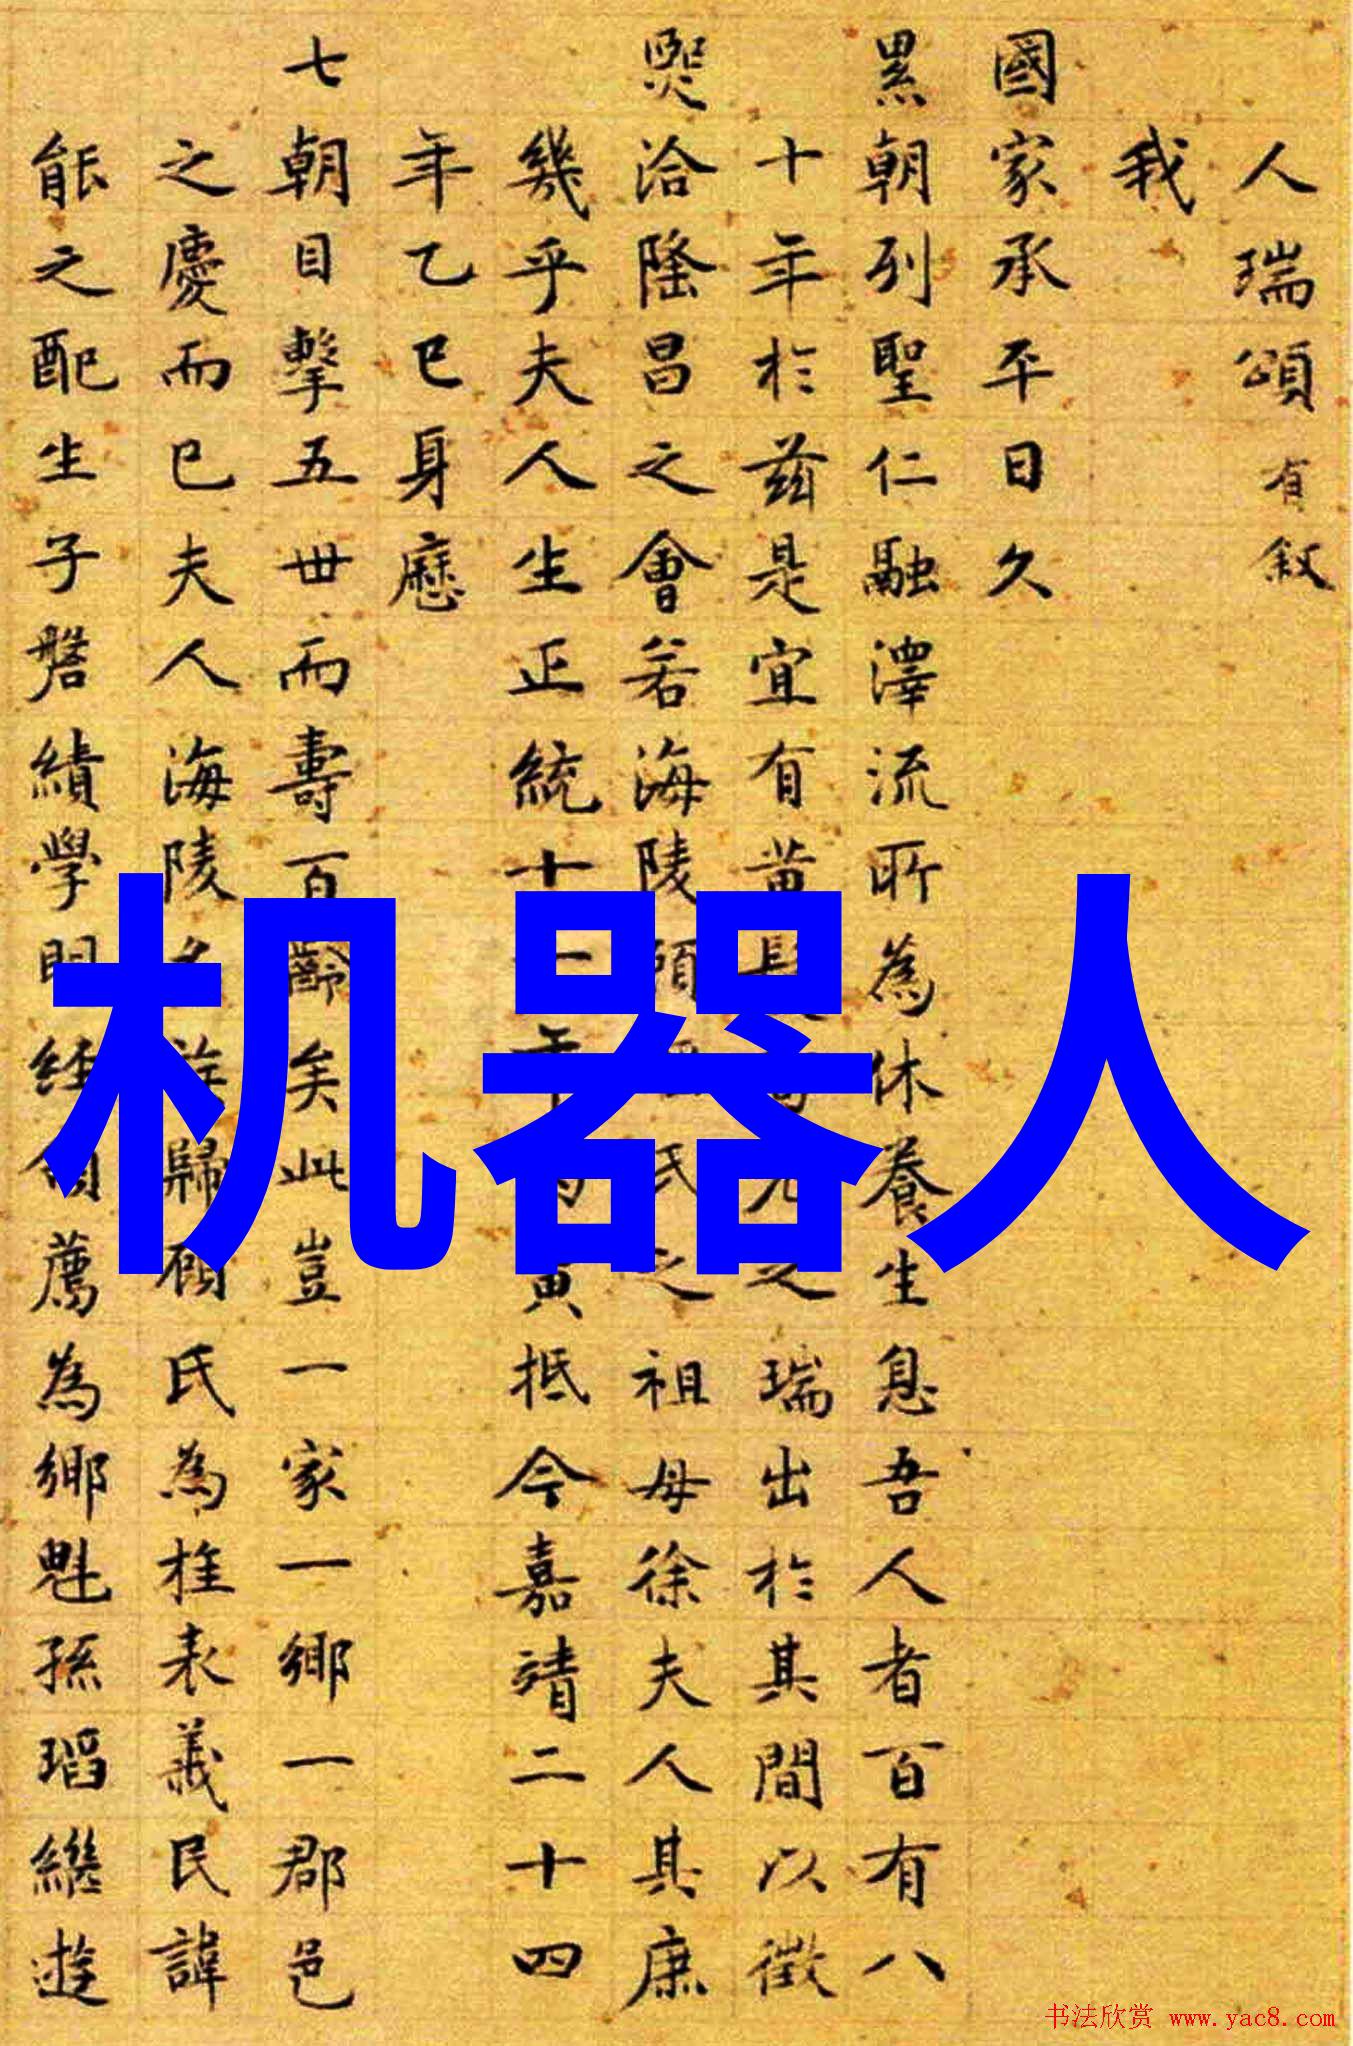 人瑞頌有叙
我
國家承平日久
累朝列聖仁融澤流所為休養生息吾人者百有八
十年於茲是宜有黄之瑞出於其間以徵
熙洽隆昌之會若海陵顧氏之祖母徐夫人其庶
幾乎夫人生正統十一年寅抵今嘉靖二十四
年乙巳身歷
七朝目擊五世而壽百齡矣此豈一家一鄉一郡邑
之慶而已夫人海陵歸顧氏為旌表義民諱
能之配生子磐績學明經領薦為鄉魁孫瑫繼遊
机器人
书法欣赏 www.yac8.com